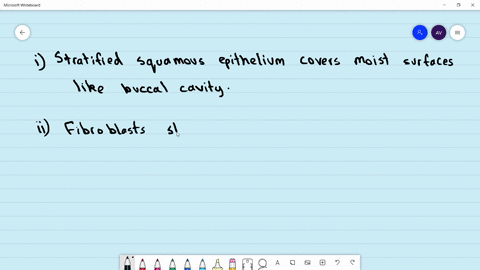 Microsoft Whiteboard
AV
i) Stratified squamous epithelium covers moist surfaces
like buccal cavity.
ii) Fibroblasts